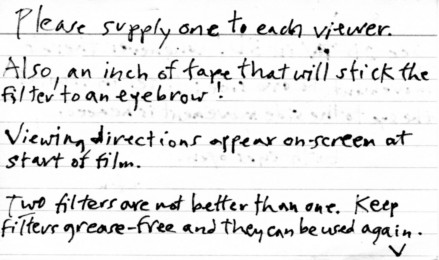 Please supply one to each viewer.
Also, an inch of tape that will stick the
filter to an eyebrow!
Viewing directions appear on-screen at
start of film.
Two filters are not better than one. Keep
filters grease-free and they can be used again.